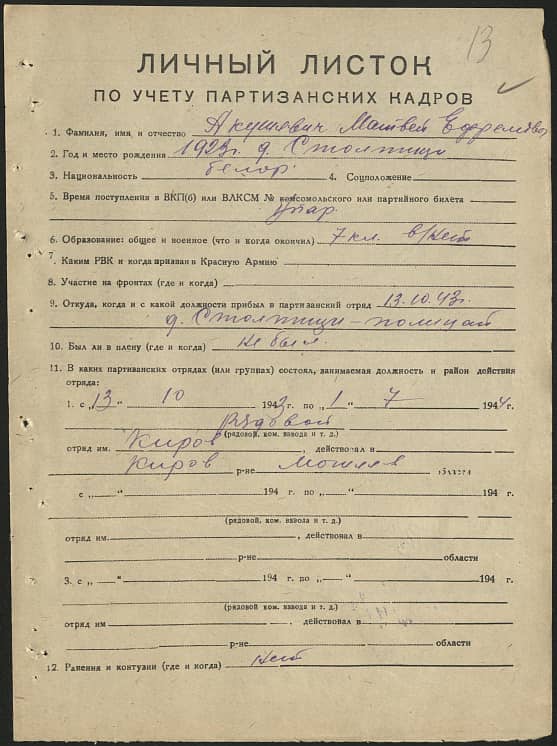 13
ЛИЧНЫЙ ЛИСТОК
ПО УЧЕТУ ПАРТИЗАНСКИХ КАДРОВ
1. Фамилия, имя и отчество Акушевич Матвей Ефремович
2. Год и место рождения 1923г. д. Столпищи
3. Национальность белор. 4. Соцположение
5. Время поступления в ВКП(б) или ВЛКСМ № комсомольского или партийного билета
6. Образование: общее и военное (что и когда окончил) 7 кл. в/нет
7. Каким РВК и когда призван в Красную Армию
8. Участие на фронтах (где и когда)
9. Откуда, когда и с какой должности прибыл в партизанский отряд 13.10.43г.
д. Столпищи - полицай
10. Был ли в плену (где и когда) не был.
11. В каких партизанских отрядах (или группах) состоял, занимаемая должность и район действия
отряда:
1. с „13" 10 1943 г. по „1" 7 1944 г.
Рядовой
(рядовой, ком. взвода и т. д.)
отряд им. Киров, действовал в
Киров р-не Могилев области
с „ " 194 г. по „ " 194 г.
(рядовой, ком. взвола и т. д.)
отряд им. , действовал в
р-не области
3. с „ " 194 г. по „ " 194 г.
(рядовой ком. взвода и т. д.)
отряд им , действовал в
р-не области
12. Ранения и контузии (где и когда) нет